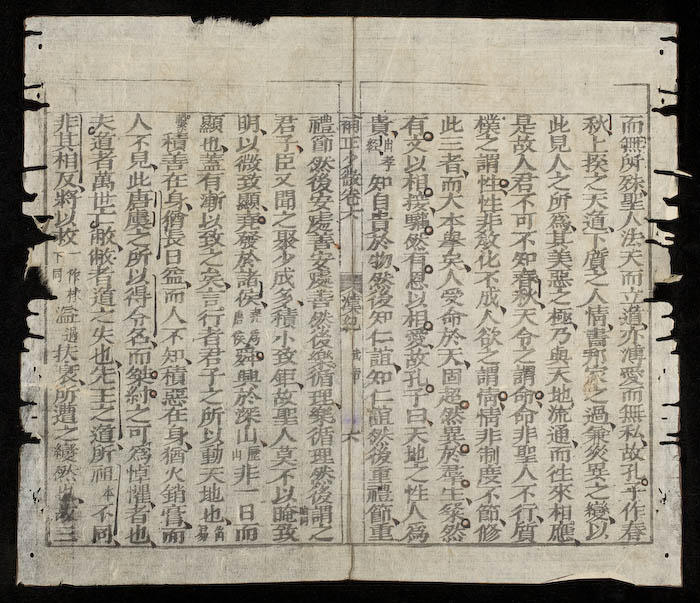 而無所殊聖人法天而立道亦溥愛而無私故孔子作春
秋上揆之天道下質之人情書邦家之過兼災異之變以
此見人之所爲其美惡之極乃與天地流通而往來相應
是故人君不可不知春秋天令之謂命命非聖人不行質
樸之謂性性非敎化不成人欲之謂情情非制度不節修
此三者而大本擧矣人受命於天固超然異於羣生粲然
有文以相接驩然有恩以相愛故孔子曰天地之性人爲
貴出孝經知自貴於物然後知仁誼知仁誼然後重禮節重
補正少微卷六 漢紀 武帝 六
禮節然後安處善安處善然後樂循理樂循理然後謂之
君子臣又聞之聚少成多積小致鉅故聖人莫不以晻致
明以微致顯堯發於諸侯堯爲唐侯舜興於深山歷山非一日而
顯也蓋有漸以致之矣言行者君子之所以動天地也出易
繫積善在身猶長日益而人不知積惡在身猶火銷膏而
人不見此唐虞之所以得令名而桀紂之可爲悼懼者也
夫道者萬世亡敝敝者道之失也先王之道所祖本不同
非其相反將以救一作捄下同溢過扶衰所遭之變然也故三